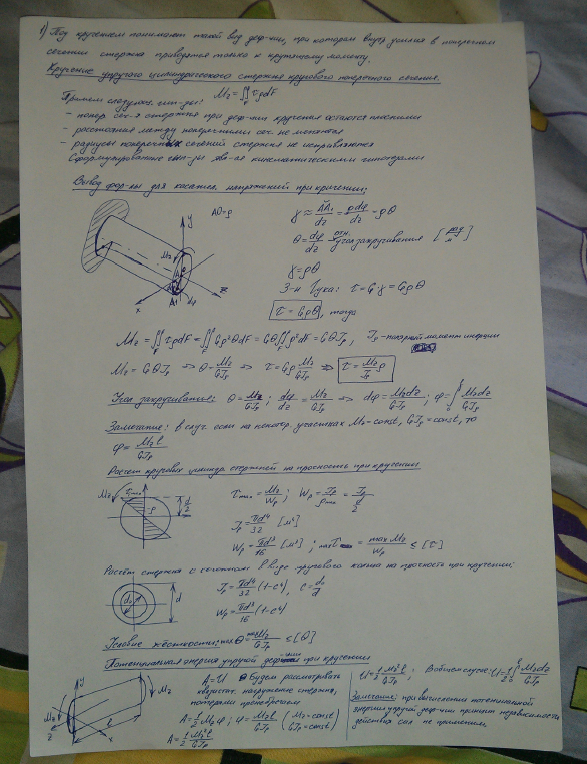 1) Под кручением понимают такой вид деф-ции, при котором внутр. усилия в поперечном
сечении стержня приводятся только к крутящему моменту.
Кручение упругого цилиндрического стержня кругового поперечного сечения.
Примем следующ. гип-зы: Mz=∬τρdF
F
- попер. сеч-я стержня при деф-ции кручения остаются плоскими
- расстояния между поперечными сеч. не меняются
- радиусы поперечных сечений стержня не искривляются
Сформулированные гип-зы явл-ся кинематическими гипотезами
Вывод фор-лы для касател. напряжений при кручении:
AO=ρ
y
γ ≈ AA₁/dz = ρdφ/dz = ρθ
θ = dφ/dz отн. угол закручивания [рад/м]
γ=ρθ
З-н Гука: τ=Gγ=Gρθ
τ=Gρθ, тогда
Mz
A
A₁
dφ
x
z
Mz=∬τρdF=∬Gρ²θdF=Gθ∬ρ²dF=GθJp, Jp - полярный момент инерции
Mz=GθJp ⇒ θ=Mz/GJp ⇒ τ=Gρ Mz/GJp ⇒ τ=Mz/Jp ρ
Угол закручивания: θ=Mz/GJp; dφ/dz=Mz/GJp ⇒ dφ=Mzdz/GJp; φ=∫Mzdz/GJp
Замечание: в случ. если на некотор. участках Mz-const, GJp=const, то
φ=Mzl/GJp
Расчёт круговых цилиндр. стержней на прочность при кручении
Mz
τmax
ρ
d/2
τmax=Mz/Wp; Wp=Jp/ρmax=Jp/(d/2)
Jp=πd⁴/32 [м⁴]
Wp=πd³/16 [м³]; maxτ = maxMz/Wp ≤ [τ]
Расчёт стержня с сечением в виде кругового кольца на прочность при кручении:
d₀
d
Jp=πd⁴/32 (1-c⁴), c=d₀/d
Wp=πd³/16 (1-c⁴)
Условие жёсткости: maxθ=maxMz/GJp ≤[θ]
Потенциальная энергия упругой деф-ции при кручении
A=U Будем рассматривать
квазистат. нагружение стержня,
потерями пренебрегаем
A=1/2 Mzφ; φ=Mzl/GJp (Mz=const GJp=const)
A=1/2 Mz²l/GJp
y
Mz
Mz
l
x
U=1/2 Mz²l/GJp; В общем случае: U=1/2∫Mz²dz/GJp
Замечание: при вычислении потенциальной
энергии упругой деф-ции принцип независимости
действия сил не применим.